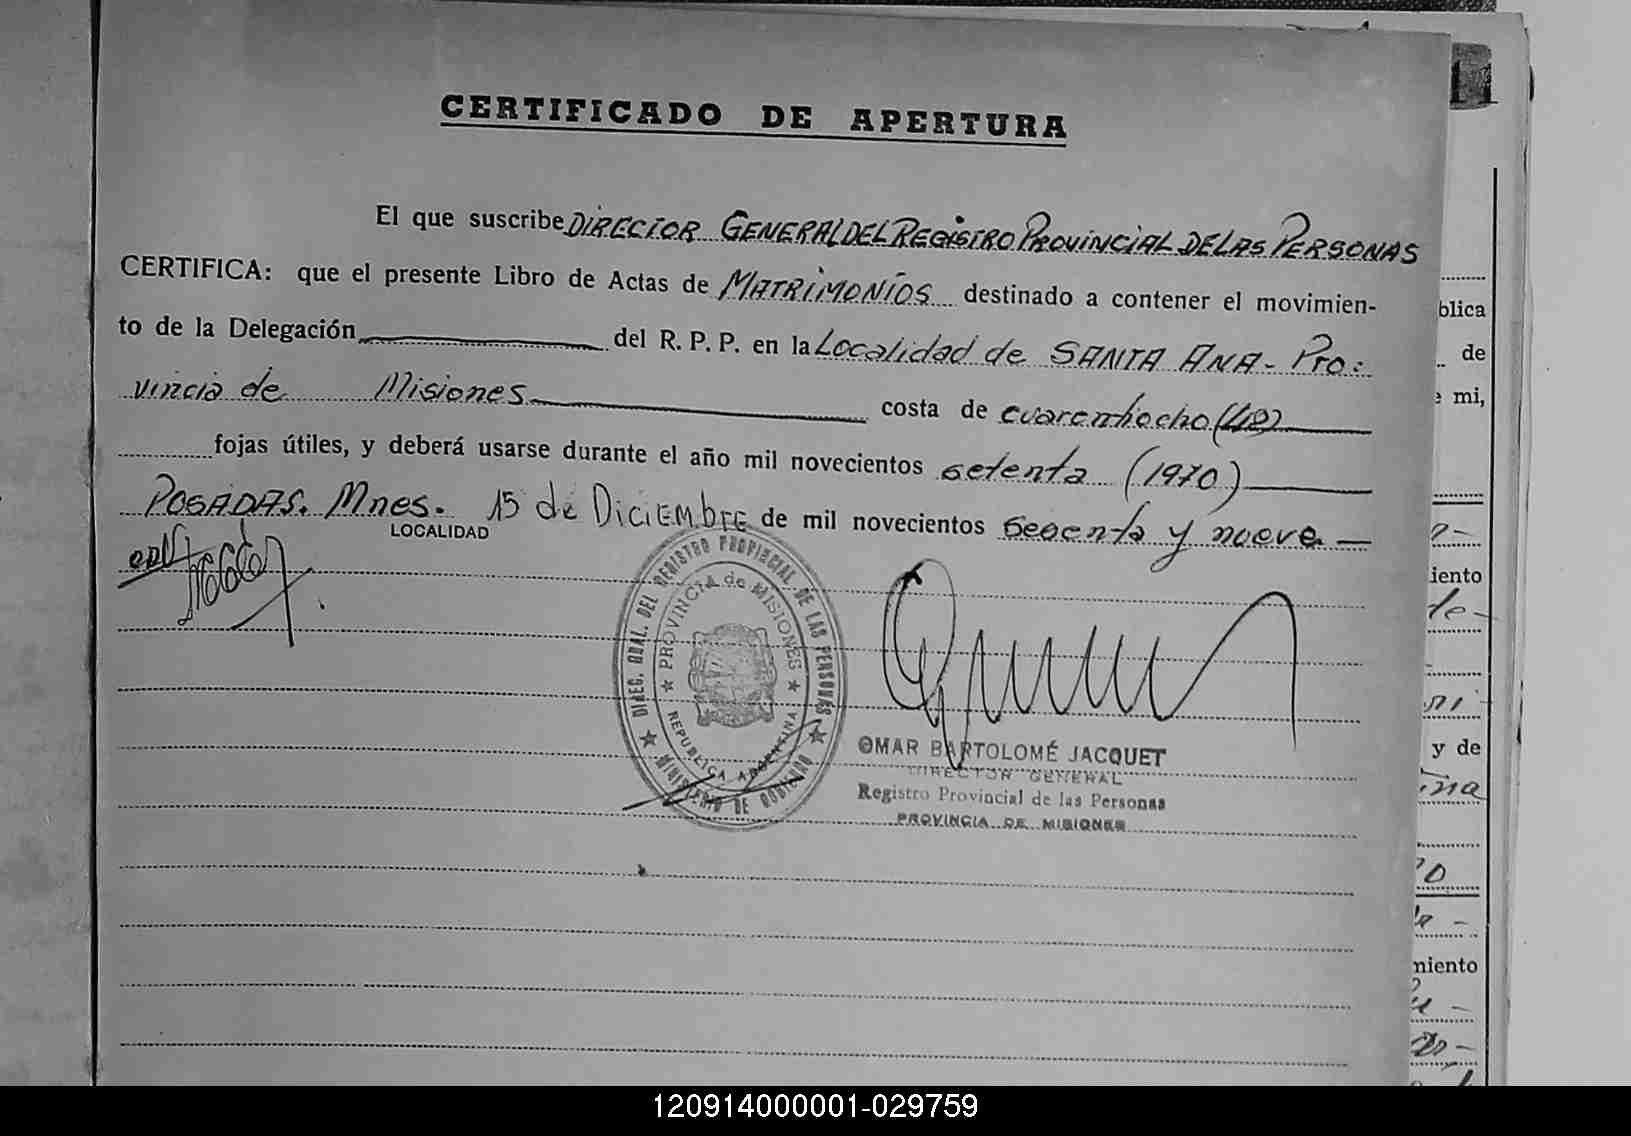 CERTIFICADO DE APERTURA
El que suscribe DIRECTOR GENERAL DEL REGISTRO PROVINCIAL DE LAS PERSONAS
CERTIFICA: que el presente Libro de Actas de MATRIMONIOS destinado a contener el movimien-
to de la Delegación del R. P. P. en la Localidad de SANTA ANA- Pro:
vincia de Misiones costa de cuarentiocho (48)
fojas útiles, y deberá usarse durante el año mil novecientos setenta (1970)
POSADAS. Mnes. 15 de DiCiEMbrE de mil novecientos sesenta y nueve.—
LOCALIDAD
DIREC. GRAL. DEL REGISTRO PROVINCIAL DE LAS PERSONAS
MINISTERIO DE GOBIERNO
PROVINCIA de MISIONES
REPUBLICA ARGENTINA
OMAR BARTOLOMÉ JACQUET
DIRECTOR GENERAL
Registro Provincial de las Personas
PROVINCIA DE MISIONES
blica
de
mi,
iento
y de
miento
120914000001-029759